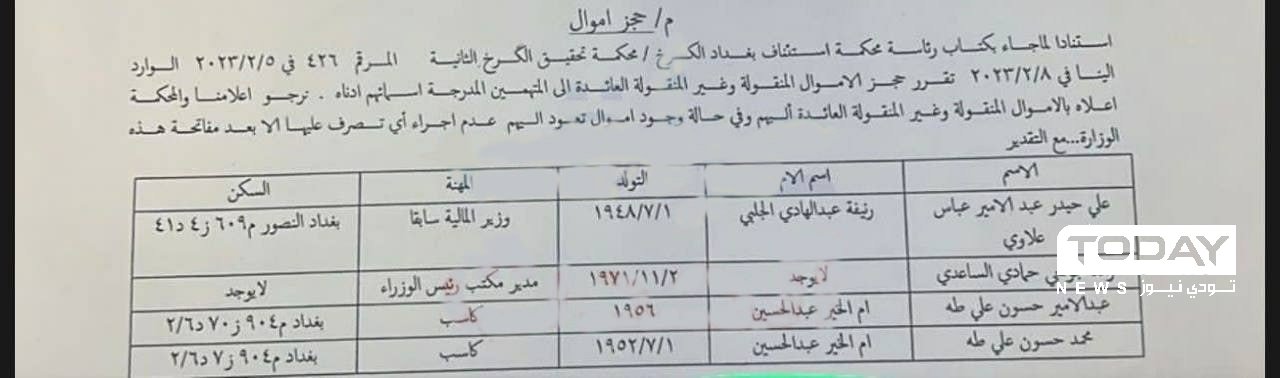 م/ حجز اموال
استنادا لماجاء بكتاب رئاسة محكمة استئناف بغداد الكرخ / محكمة تحقيق الكرخ الثانية المرقم ٤٢٦ في ٢٠٢٣/٢/٥ الوارد
الينا في ٢٠٢٣/٢/٨ تقرر حجز الاموال المنقولة وغير المنقولة العائدة الى المتهمين المدرجة اسمائهم ادناه . نرجو اعلامنا والمحكمة
اعلاه بالاموال المنقولة وغير المنقولة العائدة أليهم وفي حالة وجود اموال تعود اليهم عدم اجراء أي تصرف عليها الا بعد مفاتحة هذه
الوزارة...مع التقدير
الاسم اسم الام التولد المهنة السكن
علي حيدر عبد الامير عباس علاوي رئيفة عبدالهادي الجلبي ١٩٤٨/٧/١ وزير المالية سابقا بغداد النصور م٦٠٩ ز٤ د٤١
حمادي الساعدي لايوجد ١٩٧١/١١/٢ مدير مكتب رئيس الوزراء لايوجد
عبدالامير حسون علي طه ام الخير عبدالحسين ١٩٥٦ كاسب بغداد م٩٠٤ ز٧٠ د٢/٦
محمد حسون علي طه ام الخير عبدالحسين ١٩٥٢/٧/١ كاسب بغداد م٩٠٤ ز٧ د٢/٦
TODAY
NEWS تودي نيوز